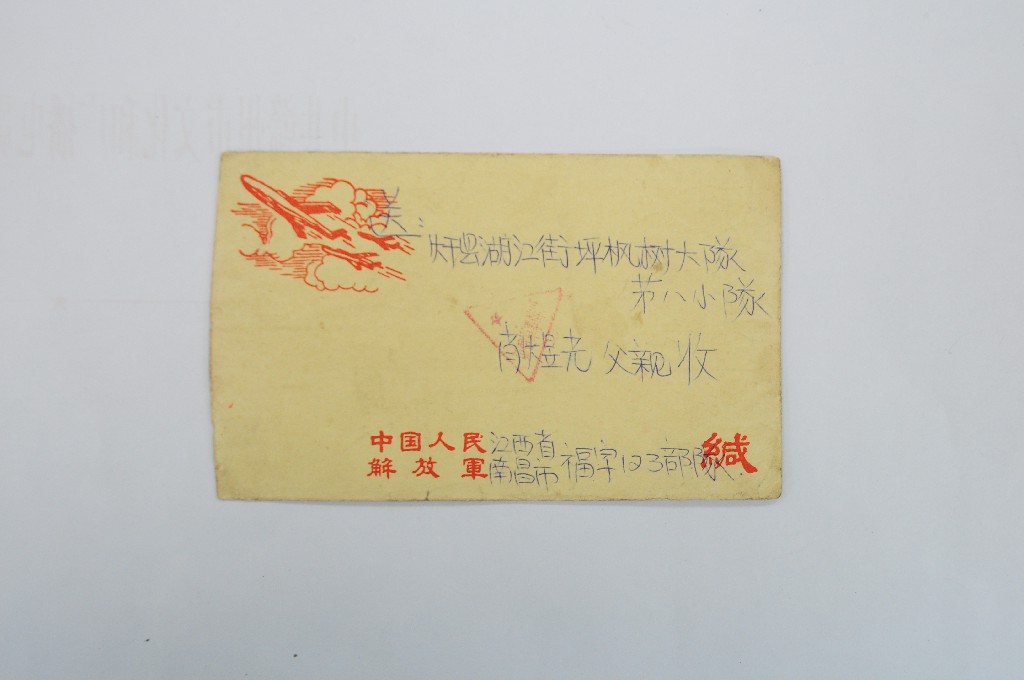 送：
㶥县湖江街坪枫树大队
第八小队
肖煜光 父親 收
中国人民
解放軍
江西省
南昌市 福字123部队
緘